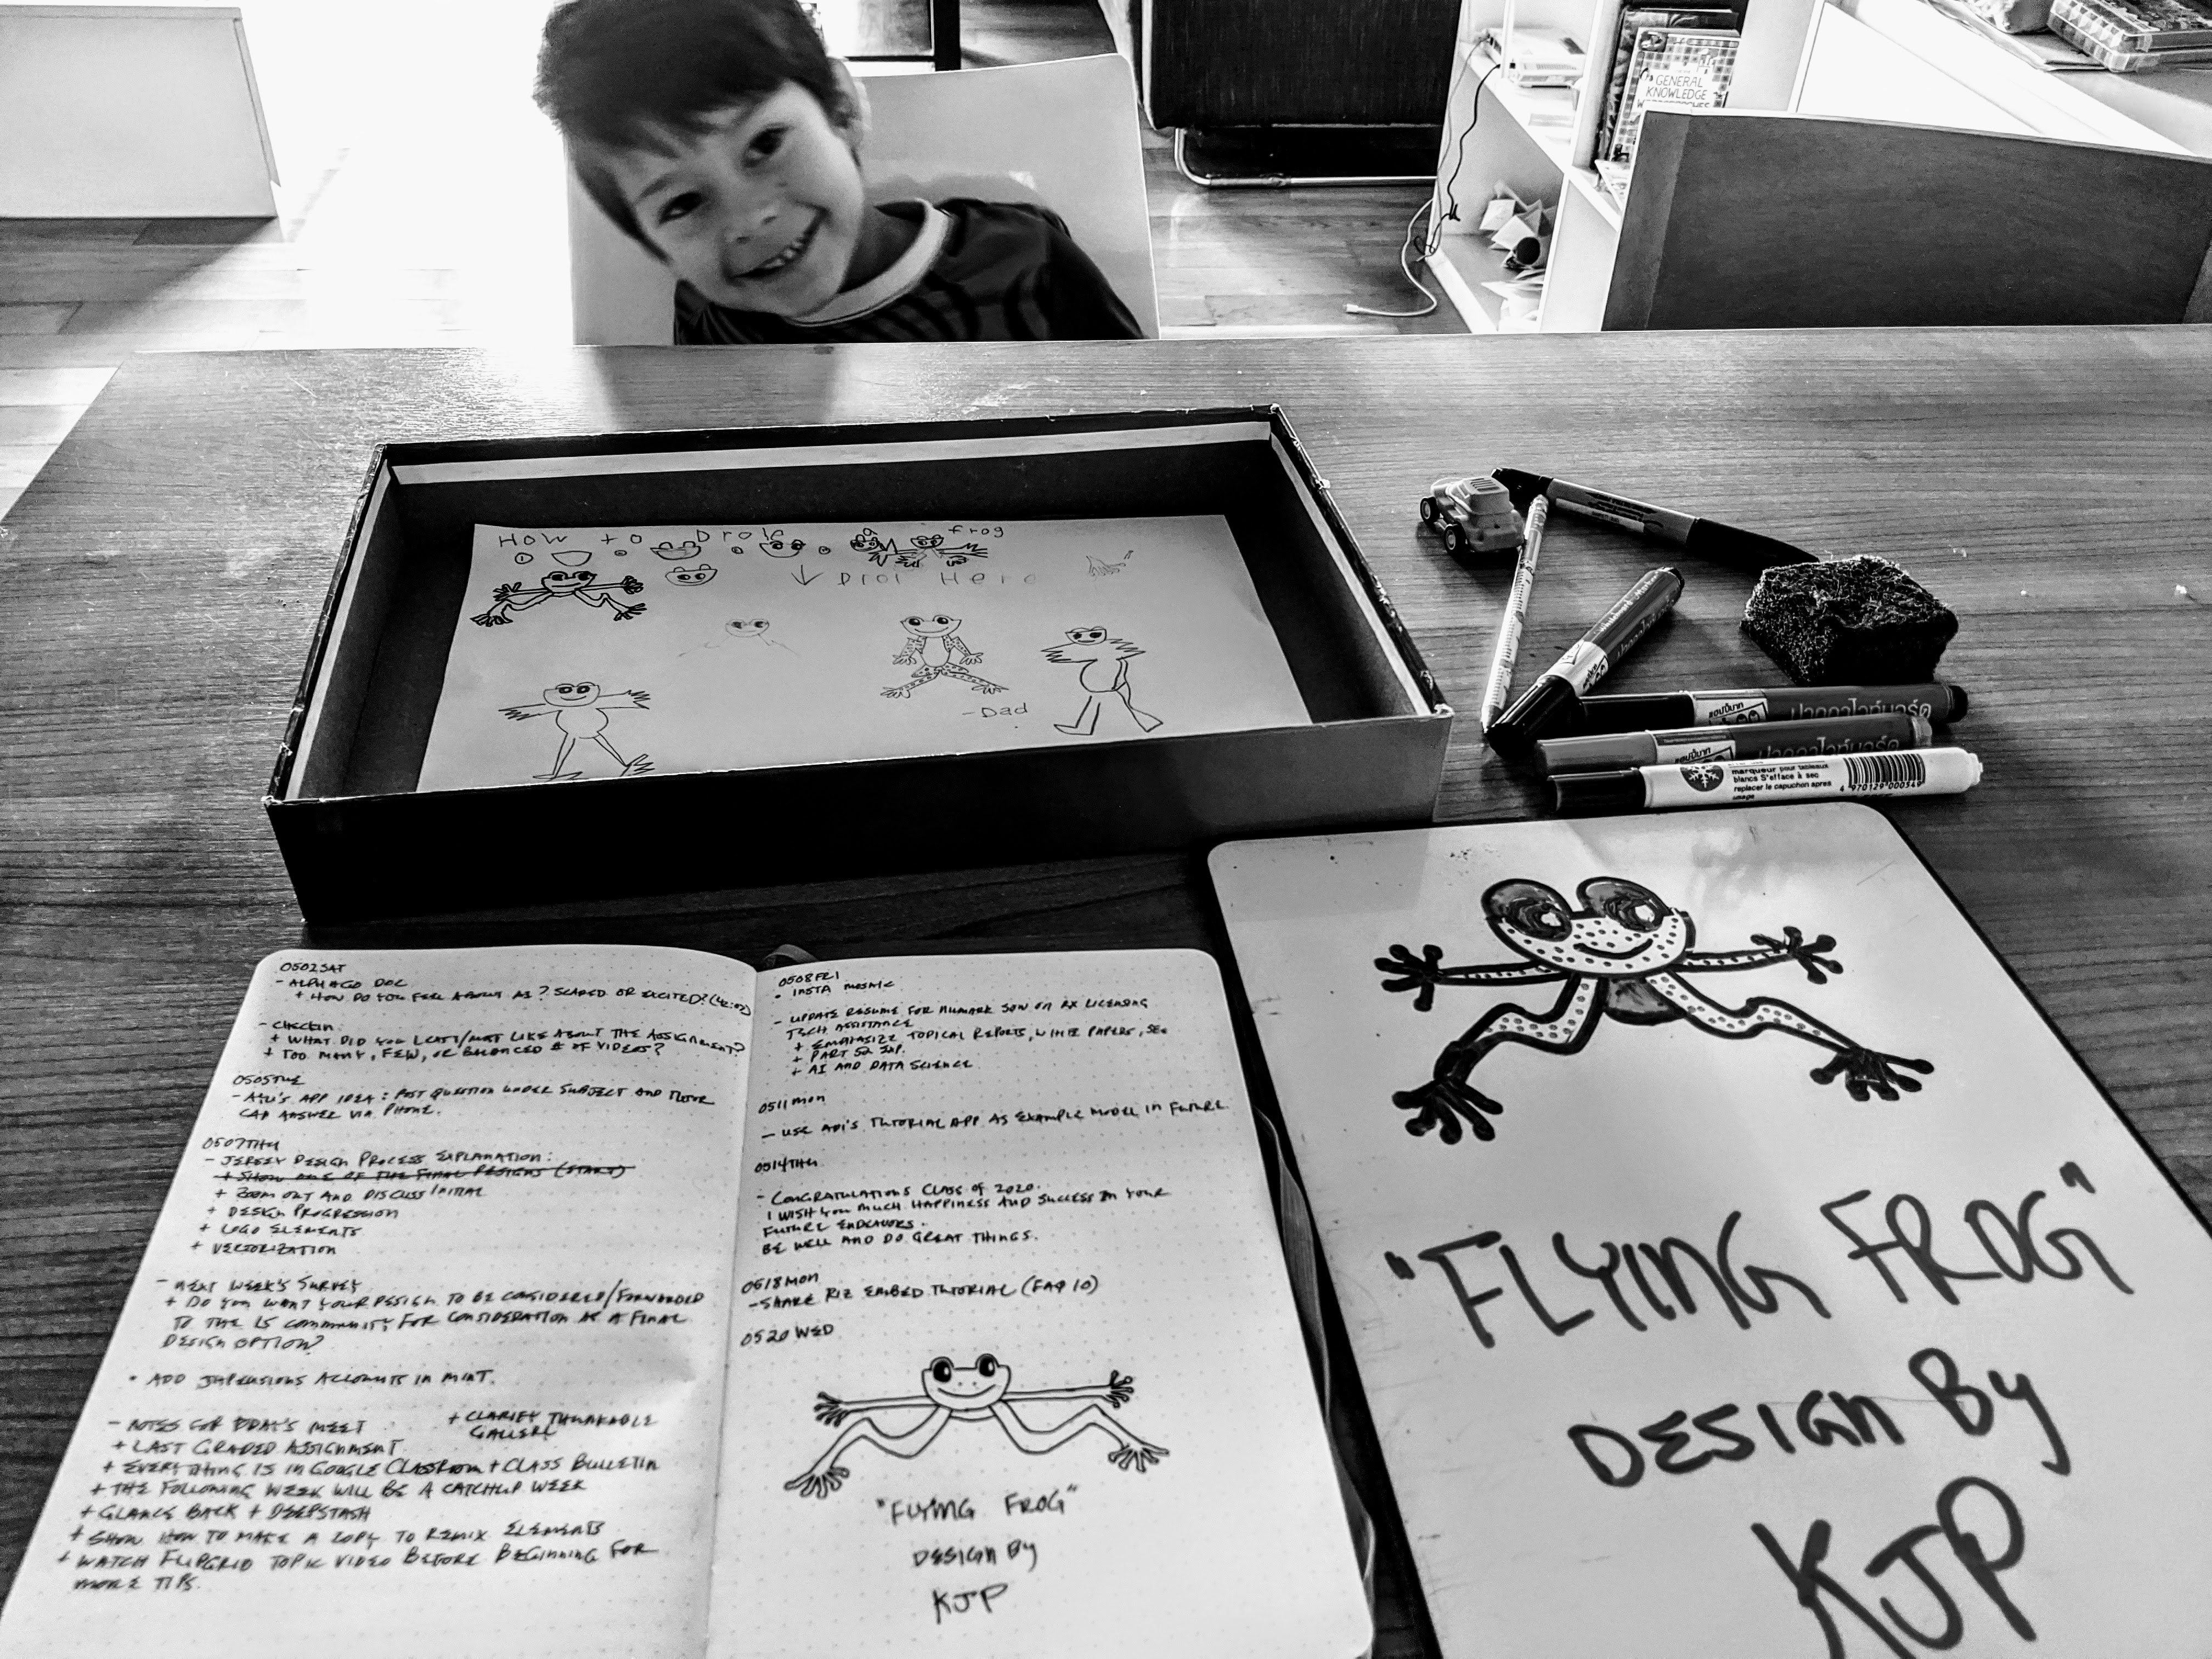 GENERAL
KNOWLEDGE
How to Drole a frog
①
↓ Dror Here
-Dad
ปากกาไวท์บอร์ด
ปากกาไวท์บอร์ด
marqueur pour tableaux
blancs S'efface à sec
replacer le capuchon après
usage
4 970129 000549
0502SAT
- ALPHAGO DOC
+ HOW DO YOU FEEL ABOUT AI? SCARED OR EXCITED?
- CHECKIN
+ WHAT DID YOU LEAST/MOST LIKE ABOUT THE ASSIGNMENT?
+ TOO MANY, FEW, OR BALANCED # OF VIDEOS?
0505TUE
- APP IDEA: POST QUESTION UNDER SUBJECT AND TUTOR
CAN ANSWER VIA PHONE.
0507THU
- JERSEY DESIGN PROCESS EXPLANATION:
+ SHOW ONE OF THE FINAL DESIGNS (START)
+ ZOOM OUT AND DISCUSS INITIAL
+ DESIGN PROGRESSION
+ LOGO ELEMENTS
+ VECTORIZATION
- NEXT WEEK'S SURVEY
+ DO YOU WANT YOUR DESIGN TO BE CONSIDERED/FORWARDED
TO THE IS COMMUNITY FOR CONSIDERATION AS A FINAL
DESIGN OPTION?
• ADD ACCOUNTS IN MINT.
- NOTES FOR TODAY'S MEET
+ LAST GRADED ASSIGNMENT
+ EVERYTHING IS IN GOOGLE CLASSROOM + CLASS BULLETIN
+ THE FOLLOWING WEEK WILL BE A CATCHUP WEEK
+ GLANCE BACK + DEEPSTASH
+ SHOW HOW TO MAKE A COPY TO REMIX ELEMENTS
+ WATCH FLIPGRID TOPIC VIDEO BEFORE BEGINNING FOR
MORE TIPS.
+ CLARIFY THUNKABLE
GALLERY
0508FRI
• INSTA MOSAIC
- UPDATE RESUME FOR NUMARK SOW ON RX LICENSING
TECH ASSISTANCE
+ EMPHASIZE TOPICAL REPORTS, WHITE PAPERS,
+ PART 52 EXP.
+ AI AND DATA SCIENCE
0511MON
- USE ADI'S TUTORIAL APP AS EXAMPLE MODEL IN FUTURE
0514THU
- CONGRATULATIONS CLASS OF 2020.
I WISH YOU MUCH HAPPINESS AND SUCCESS IN YOUR
FUTURE ENDEAVORS.
BE WELL AND DO GREAT THINGS.
0518MON
- SHARE RIZ EMBED TUTORIAL (FAQ 10)
0520WED
"FLYING FROG"
DESIGN BY
KJP
"FLYING FROG"
DESIGN By
KJP